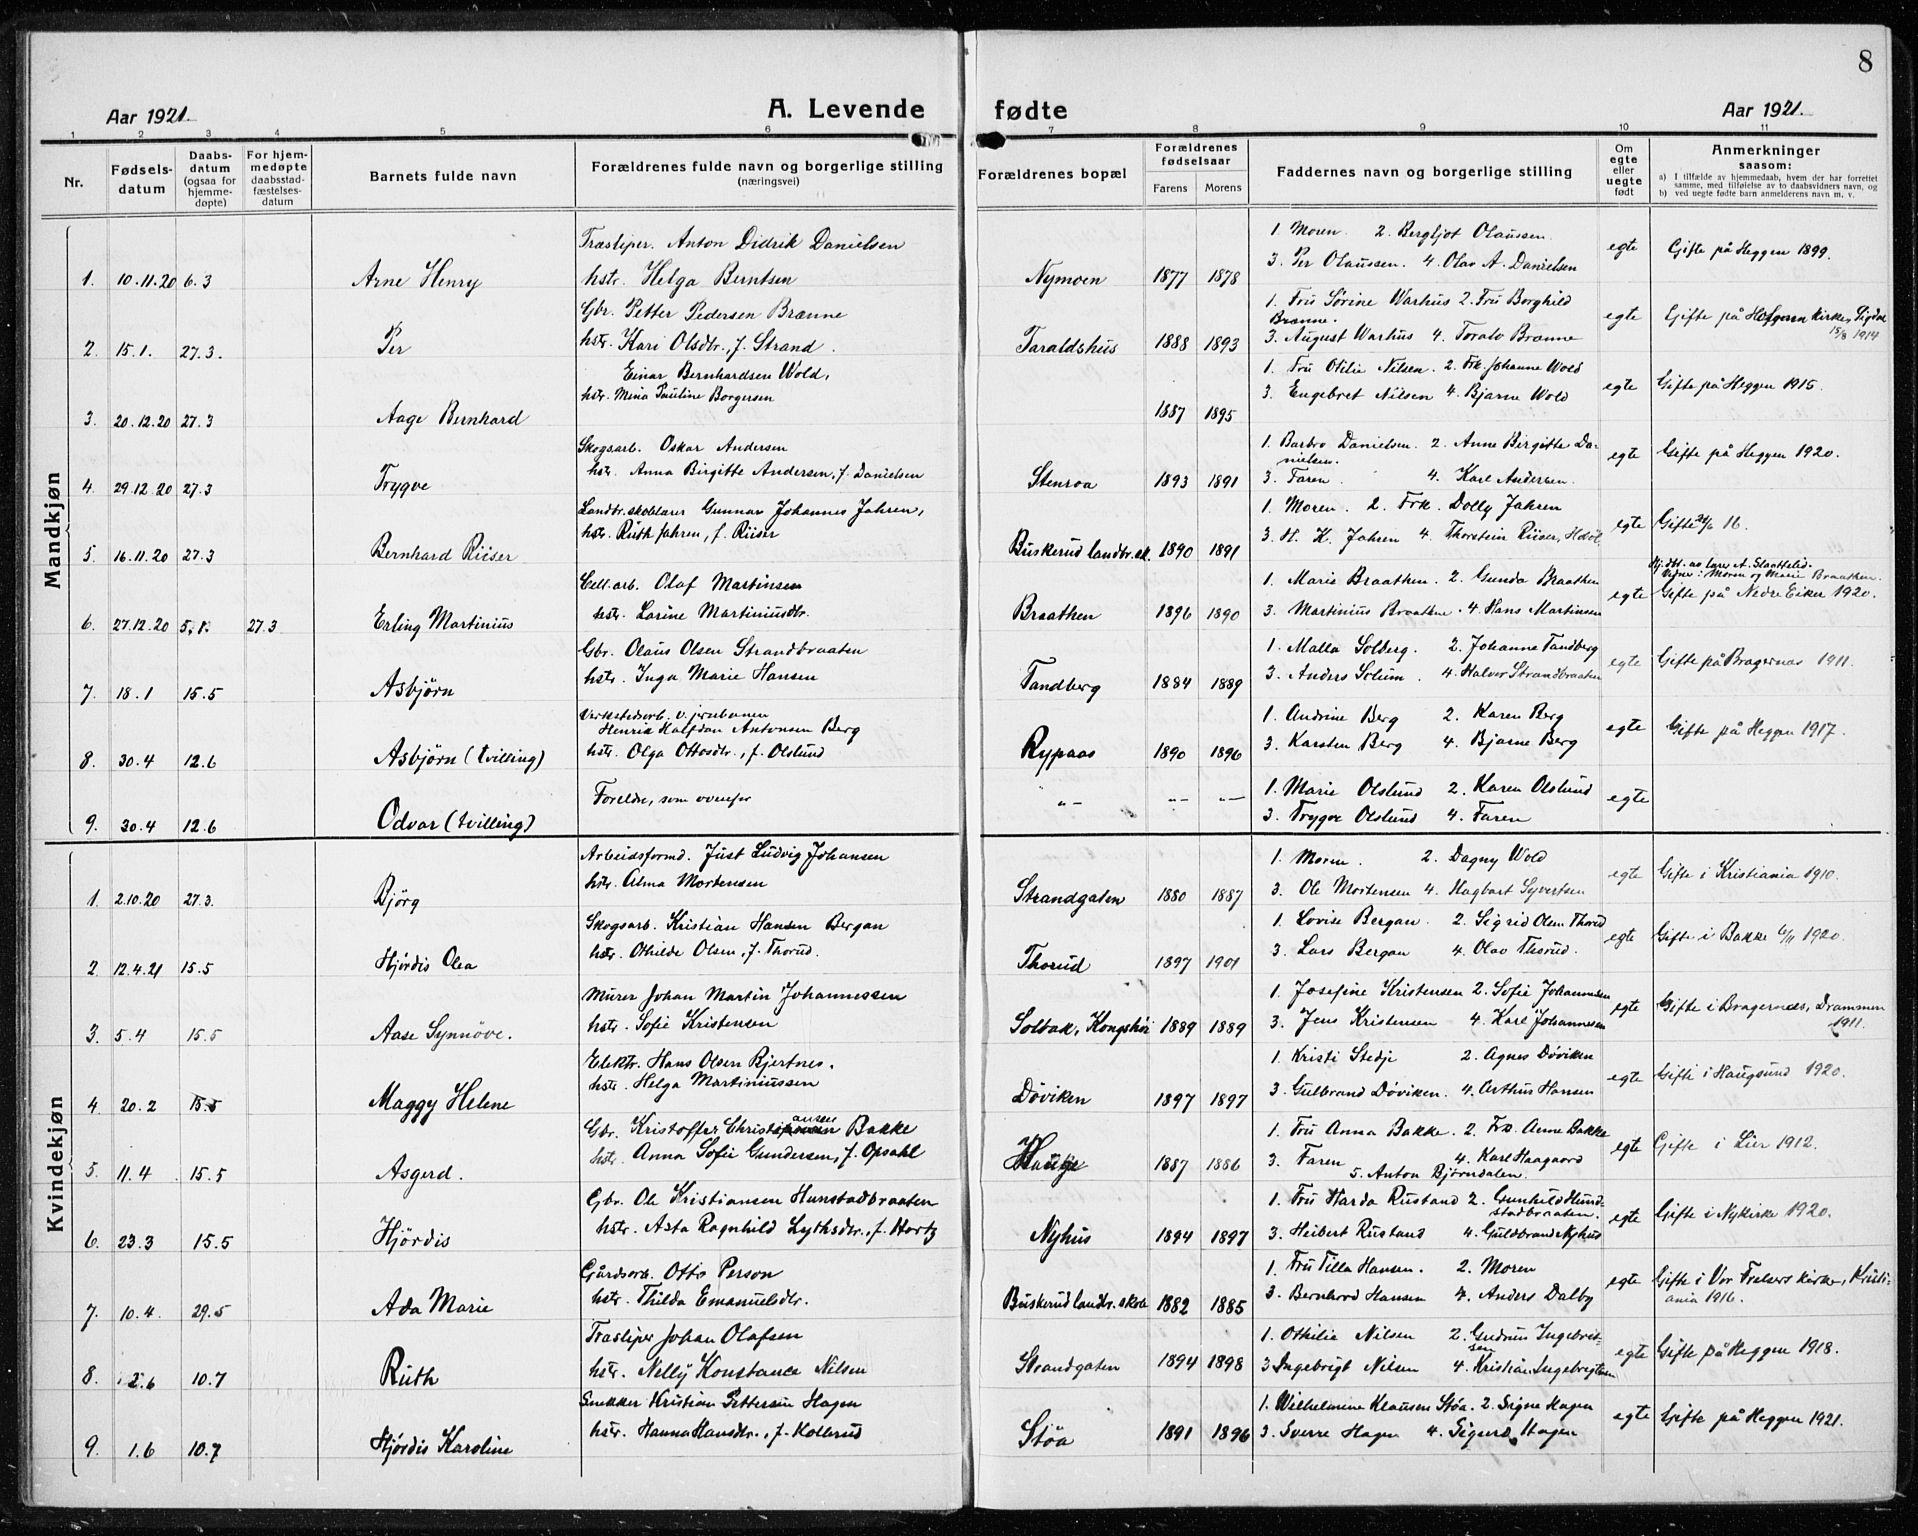 8
Aar 1921.
A. Levende
fødte
Aar 1921.
1 2 3 4 5 6 7 8 9 10 11
Nr.
Fødsels-
datum
Daabs-
datum
(ogsaa for
hjemme-
døpte)
For hjem-
medøpte
daabsstad-
fæstelses-
datum
Barnets fulde navn
Forældrenes fulde navn og borgerlige stilling
(næringsvei)
Forældrenes bopæl
Forældrenes
fødselsaar
Farens
Morens
Faddernes navn og borgerlige stilling
Om
egte
eller
uegte
født
Anmerkninger
saasom:
a) I tilfælde av hjemmedaab, hvem der har forrettet
samme, med tilføielse av to daabsvidners navn, og
b) ved uegte fødte barn anmelderens navn m. v.
Mandkjøn
Træsliper. Anton Didrik Danielsen
1. Moren. 2. Bergljot Olaussen.
1. 10.11.20 6.3 Arne Henry hstr. Helga Berntsen Nymoen 1877 1878 3. Per Olaussen. 4. Olav A. Danielsen egte Gifte på Heggen 1899.
Gbr. Petter Pedersen Brænne
1. Fru Sørine Warhus 2. Fru Borghild
Brænne.
2. 15.1. 27.3. Per hstr. Kari Olsdtr., f. Strand. Taraldshus 1888 1893 3. August Warhus 4. Toralv Brænne egte Gifte på Holmen Kirke, Sigdal
15/8 1914
Einar Bernhardsen Wold,
hstr. Mina Pauline Borgersen
1. Fru Otilie Nilsen. 2. Frk. Johanne Wold
3. 20.12.20 27.3 Aage Bernhard 1887 1895 3. Engebret Nilsen 4. Bjarne Wold egte Gifte på Heggen 1915.
Skogsarb. Oskar Andersen
hstr. Anna Birgitte Andersen, f. Danielsen
1. Barbro Danielsen. 2. Anne Birgitte Da-
nielsen.
4. 29.12.20 27.3 Trygve Stenroa 1893 1891 3. Faren. 4. Karl Andersen. egte Gifte på Heggen 1920.
Landbr.skolelærer Gunnar Johannes Jahren,
hstr. Ruth Jahren, f. Riiser
1. Moren. 2. Frk. Dolly Jahren
5. 16.11.20 27.3 Bernhard Riiser Buskerud landbr.sk. 1890 1891 3. H. K. Jahren 4. Thorstein Riiser, egte Gifte 16.
Hj.dbt. av lærer A. Slaattelid.
Vidner: Moren og Marie Braathen.
Cell.arb. Olaf Martinsen
hstr. Lorine Martiniusdtr.
1. Marie Braathen. 2. Gunda Braathen
6. 27.12.20 5.1. 27.3 Erling Martinius Braathen 1896 1890 3. Martinius Braathen. 4. Hans Martinsen egte Gifte på Nedre Eiker 1920.
Gbr. Olaus Olsen Strandbraaten
hstr. Inga Marie Hansen
1. Malla Solberg. 2. Johanne Tandberg
7. 18.1 15.5 Asbjørn Tandberg 1884 1889 3. Anders Solum. 4. Halvor Strandbraaten egte Gifte på Bragernæs 1911.
Verkstedsarb. v. jernbanen
Henrik Halfdan Antonsen Berg
hstr. Olga Ottosdtr., f. Olslund
1. Andrine Berg 2. Karen Berg
8. 30.4 12.6 Asbjørn (tvilling) Rypaas 1890 1896 3. Karsten Berg 4. Bjarne Berg egte Gifte på Heggen 1917.
Foreldre, som ovenfor
1. Marie Olslund 2. Karen Olslund
9. 30.4 12.6 Odvar (tvilling) -"- -"- -"- 3. Trygve Olslund 4. Faren egte
Kvindekjøn
Arbeidsformd. Just Ludvig Johansen
hstr. Alma Mortensen
1. Moren. 2. Dagny Wold
1. 2.10.20 27.3. Bjørg Strandgaten 1880 1887 3. Ole Mortensen 4. Hagbart Syvertsen egte Gifte i Kristiania 1910.
Skogsarb. Kristian Hansen Bergan
hstr. Othilde Olsen, f. Thorud.
1. Lovise Bergan. 2. Sigrid Olsen Thorud
2. 12.4.21 15.5 Hjørdis Olea Thorud 1897 1901 3. Lars Bergan 4. Olav Thorud. egte Gifte i Bakke 6/11 1920.
Murer Johan Martin Johannessen
hstr. Sofie Kristensen
1. Josefine Kristensen 2. Sofie Johannesen
3. 5.4 15.5 Aase Synnöve. Solbak, Kongshöi 1889 1889 3. Jens Kristensen 4. Karl Johannesen egte Gifte i Bragernæs, Drammen
1911.
Elektr. Hans Olsen Bjertnes.
hstr. Helga Martiniussen
1. Kristi Stedje 2. Agnes Døviken
4. 20.2 15.5 Maggy Helene Döviken 1897 1897 3. Gulbrand Døviken. 4. Arthur Hansen egte Gifte i Haugsund 1920.
Gbr. Kristoffer Christiansen Bakke
hstr. Anna Sofie Gundersen, f. Opsahl
1. Fru Anna Bakke. 2. Frk. Anne Bakke
5. 11.4 15.5 Asgerd. 1887 1886 3. Faren 4. Karl Haagaard
5. Anton Bjørndalen. egte Gifte i Lier 1912.
Gbr. Ole Kristiansen Hunstadbraaten
hstr. Asta Ragnhild Lythsdtr., f. Hartz
1. Fru Harda Rustand 2. Gunhild Hund-
stadbraaten.
6. 23.3 15.5 Hjördis Nyhus 1894 1897 3. Heibert Rustand 4. Guldbrand Nyhus egte Gifte i Nykirke 1920.
Gårdsarb. Otto Person
hstr. Thilda Emanuelsdtr.
1. Fru Tilla Hansen. 2. Moren
7. 10.4. 29.5 Ada Marie Buskerud landbr.skole 1882 1885 3. Bernhard Hansen 4. Anders Dalby egte Gifte i Vor Frelsers Kirke, Kristi-
ania 1916.
Træsliper Johan Olafsen
hstr. Nelly Konstance Nilsen
1. Othilie Nilsen 2. Gudrun Ingebrigt-
sen
8. 2.6 10.7 Ruth Strandgaten 1894 1898 3. Ingebrigt Nilsen 4. Kristian Ingebrigtsen egte Gifte på Heggen 1918.
Snekker Kristian Pettersen Hagen
hstr. Hanna Hansdtr., f. Kolbrud
1. Wilhelmine Klausen Støa. 2. Signe Hagen
9. 1.6 10.7 Hjördis Karoline Støa 1891 1896 3. Sverre Hagen 4. Sigurd Hagen egte Gifte på Heggen 1921.